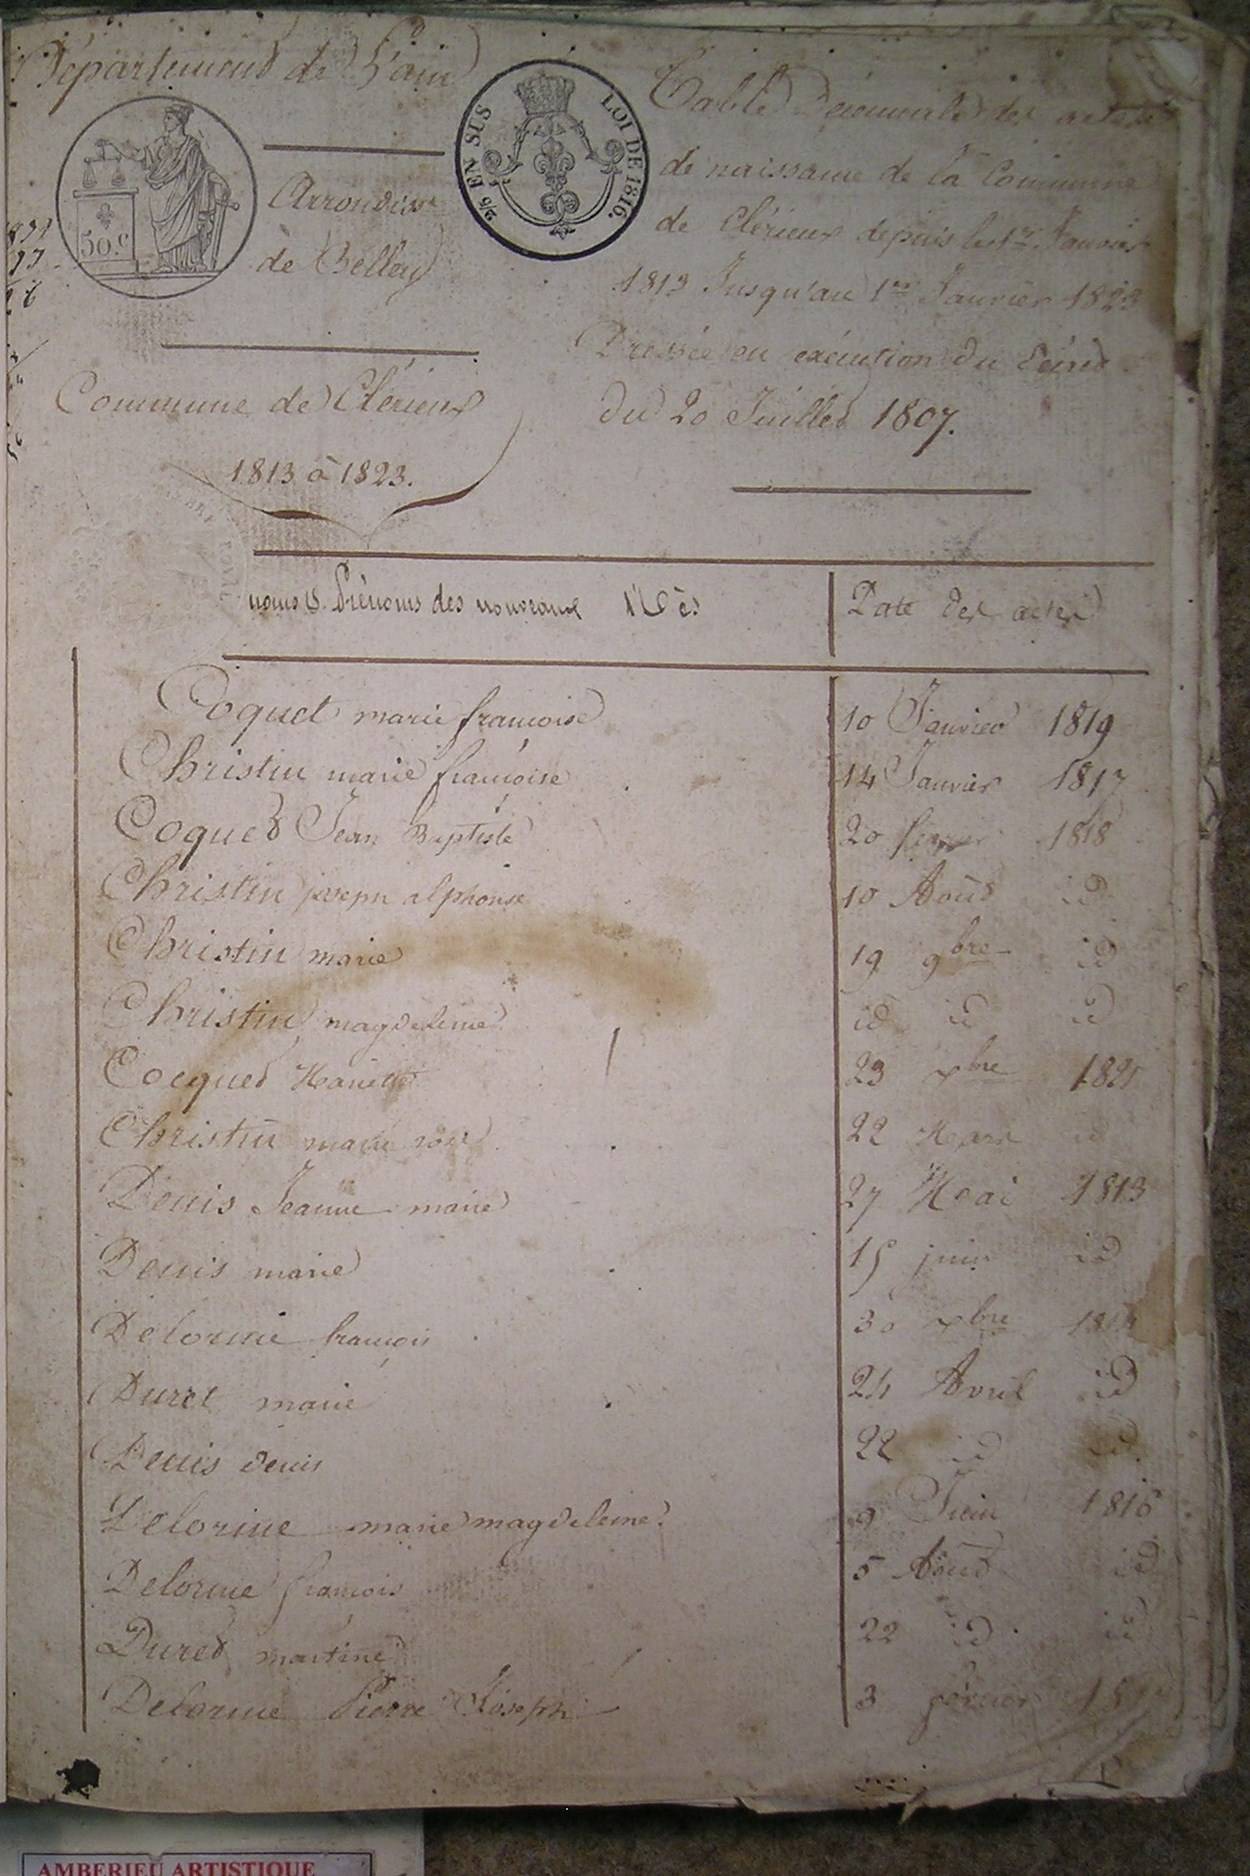 Département de L'ain
50.C
Arrondisst
de Belley
2/5 EN SUS LOI DE 1816.
Commune de Clérieux
1813 à 1823.
Table Décennale des actes
de naissance de la Commune
de Clérieux depuis le 1er Janvier
1813 Jusqu'au 1er Janvier 1823
Dressée en exécution du Décret
du 20 Juillet 1807.
noms & Prénoms des nouveaux Nés
Date des actes
Coquet marie francoise 10 Janvier 1819
Christin marie francoise 14 Janvier 1817
Coquet Jean Baptiste 20 1818
Christin joseph alphonse 10 Août id
Christin marie 19 9bre id
Christin magdeleine id id id
Cocquet Mariette 23 xbre 1821
Christin marie rose 22 Mars id
Denis Jeanne marie 27 Mai 1813
Denis marie 15 juin id
Delorme francois 30 xbre
Duret marie 24 Avril id
Denis denis 22 id id
Delorme marie magdeleine 9 Juin 1816
Delorme francois 5 Août id
Duret martine 22 id id
Delorme Pierre Joseph 3 février
AMBERIEU ARTISTIQUE